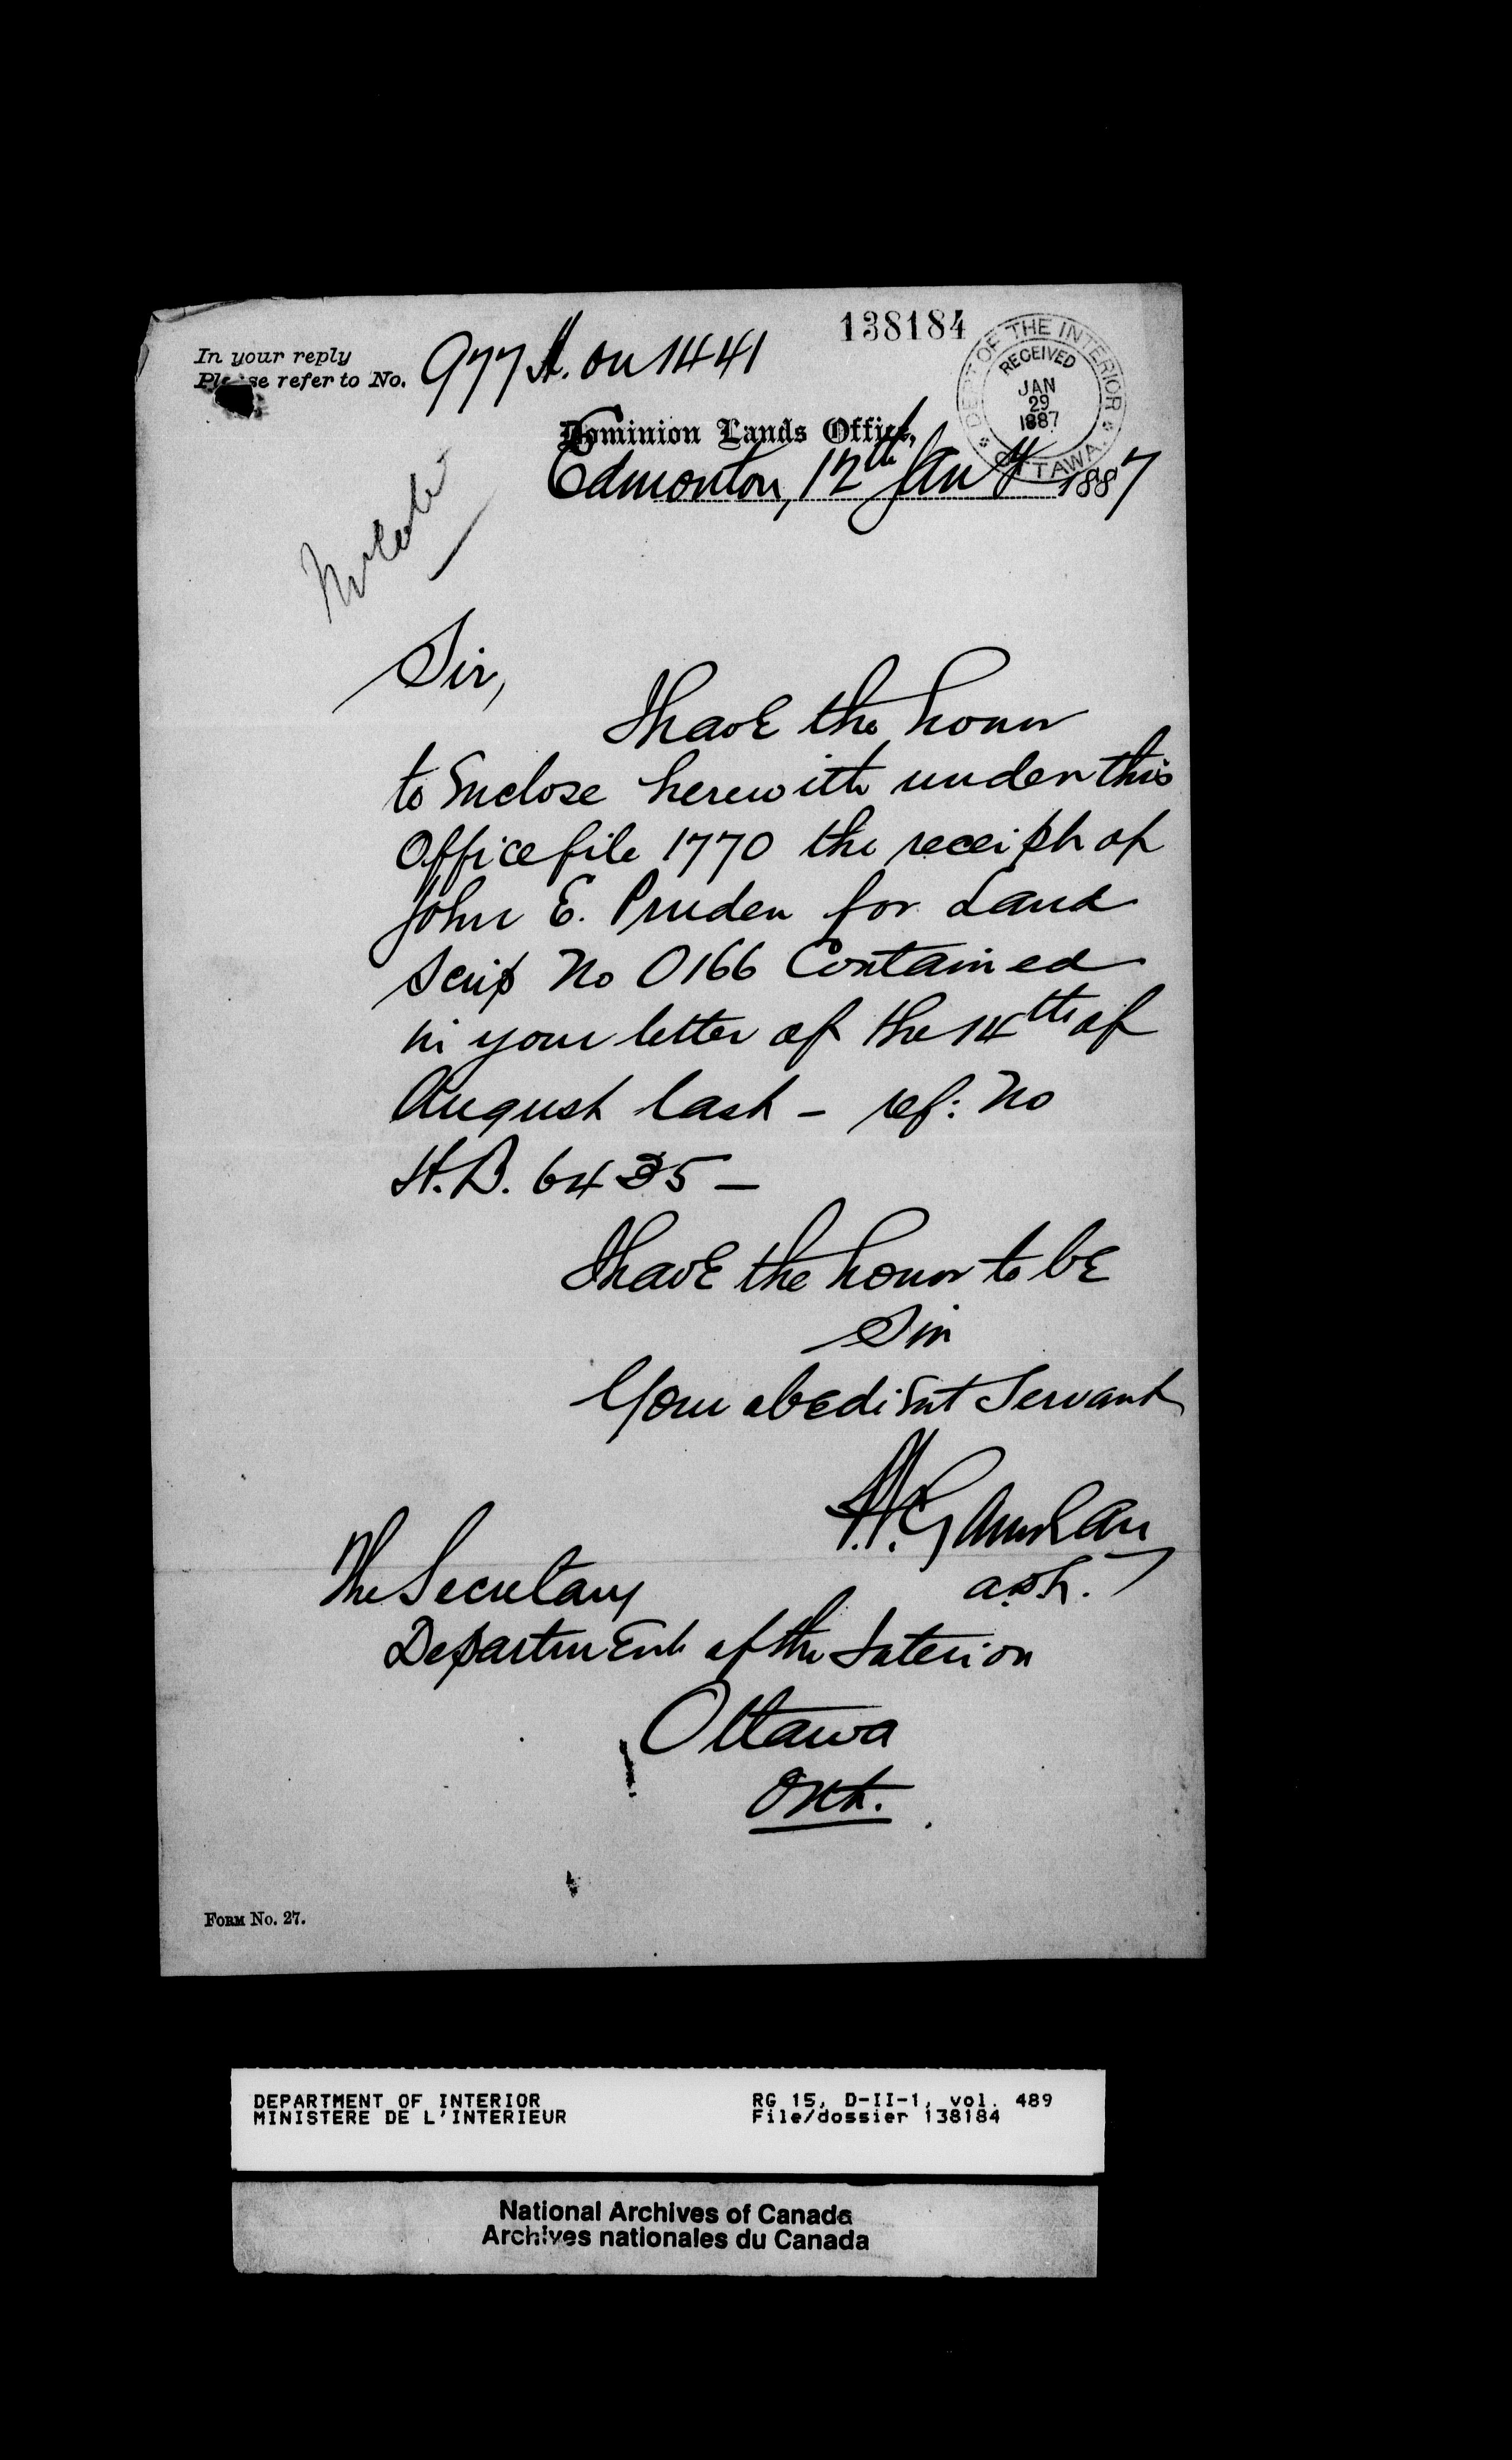 138184
DEPT OF THE INTERIOR
RECEIVED
JAN
29
1887
OTTAWA.
In your reply
Please refer to No. 977 A. on 1441
Dominion Lands Office,
Edmonton, 12th Jany 1887
Sir,
I have the honor
to Enclose herewith under this
Office file 1770 the receipt of
John E. Pruden for Land
Scrip No 0166 Contained
in your letter of the 14th of
August last - ref: No
H.B. 6435 -
I have the honor to be
Sir
Your obedient Servant
The Secretary
Department of the Interior
Ottawa
Ont.
FORM No. 27.
DEPARTMENT OF INTERIOR
MINISTERE DE L'INTERIEUR
RG 15, D-II-1, vol. 489
File/dossier 138184
National Archives of Canada
Archives nationales du Canada